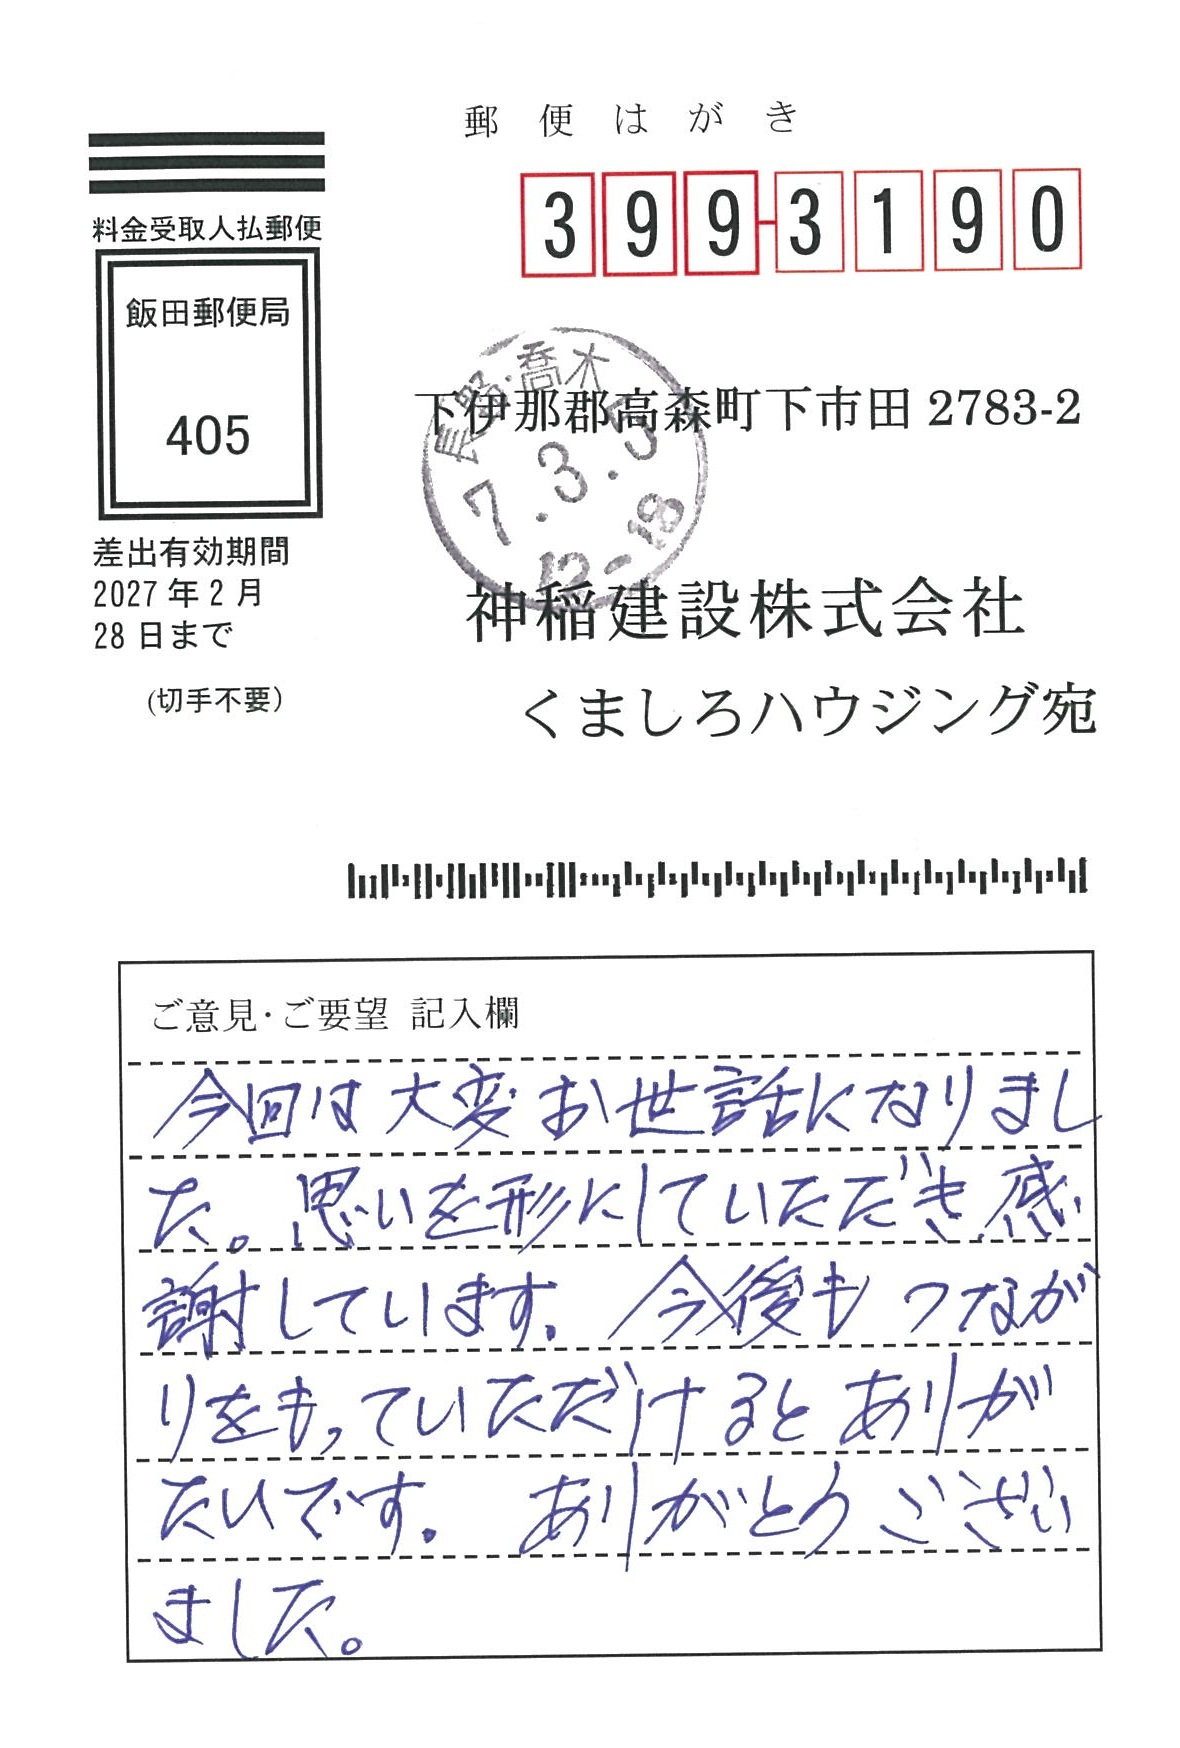 郵便はがき
399-3190
料金受取人払郵便
飯田郵便局
405
差出有効期間
2027年2月
28日まで
(切手不要)
長野・喬木
7.3.5
12-18
下伊那郡高森町下市田2783-2
神稲建設株式会社
くましろハウジング宛
ご意見・ご要望 記入欄
今回は大変お世話になりまし
た。思いを形にしていただき感
謝しています。今後もつなが
りをもっていただけるとありが
たいです。ありがとうござい
ました。